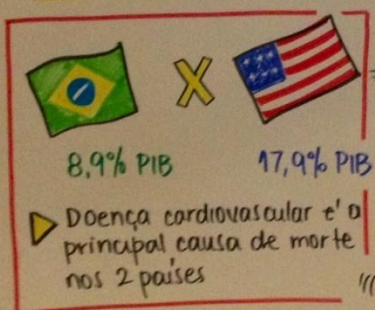 X
8,9% PIB 17,9% PIB
Doença cardiovascular é a
principal causa de morte
nos 2 países